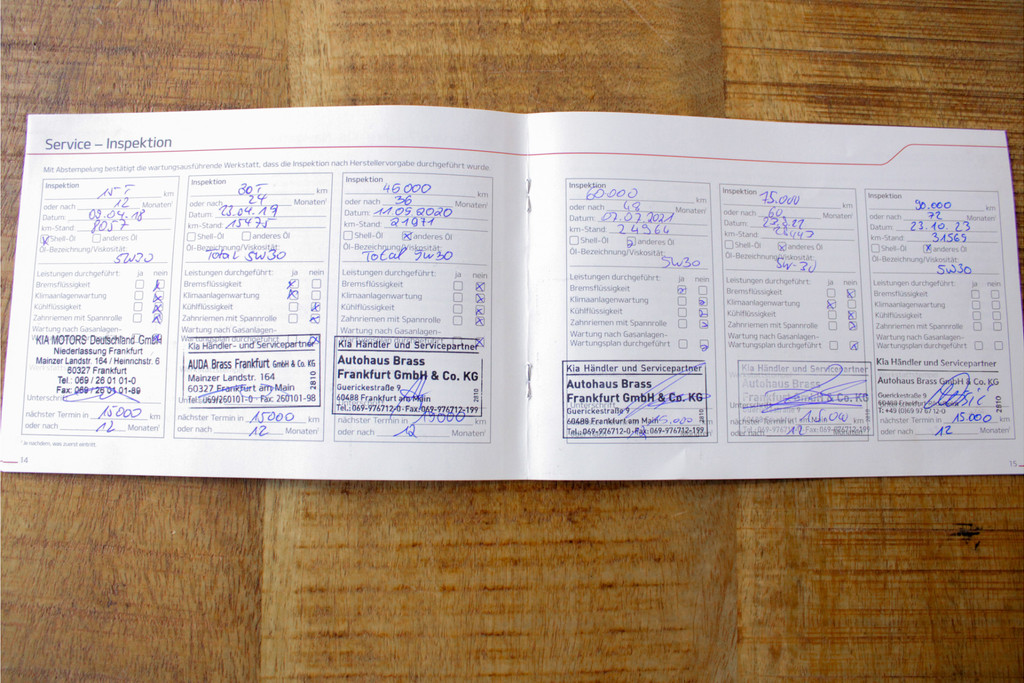 Service – Inspektion
Mit Abstempelung bestätigt die wartungsausführende Werkstatt, dass die Inspektion nach Herstellervorgabe durchgeführt wurde.
Inspektion
15 T km
oder nach 12 Monaten¹
Datum: 09.04.18
km-Stand: 8057
Shell-Öl anderes Öl
Öl-Bezeichnung/Viskosität:
5W30
Leistungen durchgeführt: ja nein
Bremsflüssigkeit
Klimaanlagenwartung
Kühlflüssigkeit
Zahnriemen mit Spannrolle
Wartung nach Gasanlagen-
KIA MOTORS Deutschland GmbH
Niederlassung Frankfurt
Mainzer Landstr. 164 / Heinrichstr. 6
60327 Frankfurt
Tel.: 069 / 26 01 01-0
Fax: 069 / 26 01 01-89
Unterschrift
nächster Termin in 15000 km
oder nach 12 Monaten¹
¹ Je nachdem, was zuerst eintritt.
14
Inspektion
30T km
oder nach 24 Monaten¹
Datum: 23.04.19
km-Stand: 15475
Shell-Öl anderes Öl
Öl-Bezeichnung/Viskosität:
Total 5W30
Leistungen durchgeführt: ja nein
Bremsflüssigkeit
Klimaanlagenwartung
Kühlflüssigkeit
Zahnriemen mit Spannrolle
Wartung nach Gasanlagen-
Kia Händler- und Servicepartner
AUDA Brass Frankfurt GmbH & Co. KG
Mainzer Landstr. 164
60327 Frankfurt am Main
Tel: 069/260101-0 - Fax: 260101-98
2810
nächster Termin in 15000 km
oder nach 12 Monaten¹
Inspektion
45 000 km
oder nach 36 Monaten¹
Datum: 11 09 2020
km-Stand: 21971
Shell-Öl anderes Öl
Öl-Bezeichnung/Viskosität:
Total 5w30
Leistungen durchgeführt: ja nein
Bremsflüssigkeit
Klimaanlagenwartung
Kühlflüssigkeit
Zahnriemen mit Spannrolle
Wartung nach Gasanlagen-
Kia Händler und Servicepartner
Autohaus Brass
Frankfurt GmbH & Co. KG
Guerickestraße 9
60488 Frankfurt am Main
Tel.: 069-976712-0 · Fax: 069-976712-199
2810
nächster Termin in 15000
oder nach 12 Monaten¹
Inspektion
60.000 km
oder nach 48 Monaten¹
Datum: 07.07.2021
km-Stand: 24964
Shell-Öl anderes Öl
Öl-Bezeichnung/Viskosität:
5W30
Leistungen durchgeführt: ja nein
Bremsflüssigkeit
Klimaanlagenwartung
Kühlflüssigkeit
Zahnriemen mit Spannrolle
Wartung nach Gasanlagen-
Wartungsplan durchgeführt
Kia Händler und Servicepartner
Autohaus Brass
Frankfurt GmbH & Co. KG
Guerickestraße 9
60488 Frankfurt am Main
Tel.: 069-976712-0 · Fax: 069-976712-199
2810
15.000
12
Inspektion
75.000 km
oder nach 60 Monaten¹
km-Stand:
Shell-Öl anderes Öl
Öl-Bezeichnung/Viskosität:
5W-30
Leistungen durchgeführt: ja nein
Bremsflüssigkeit
Klimaanlagenwartung
Kühlflüssigkeit
Zahnriemen mit Spannrolle
Wartung nach Gasanlagen-
Wartungsplan durchgeführt
Kia Händler und Servicepartner
Autohaus Brass
Frankfurt GmbH & Co. KG
nächster Termin in 15.000 km
oder nach 12
Tel.: 069-976712-0 · Fax: 069-976712-199
2810
Inspektion
90.000 km
oder nach 72 Monaten¹
Datum: 23.10.23
km-Stand: 31565
Shell-Öl anderes Öl
Öl-Bezeichnung/Viskosität:
5W30
Leistungen durchgeführt: ja nein
Bremsflüssigkeit
Klimaanlagenwartung
Kühlflüssigkeit
Zahnriemen mit Spannrolle
Wartung nach Gasanlagen-
Wartungsplan durchgeführt
Kia Händler und Servicepartner
Autohaus Brass
Frankfurt GmbH & Co. KG
Guerickestraße 9
60488 Frankfurt am Main
T: +49 (0)69 97 67 12-0
2810
nächster Termin in 15.000 km
oder nach 12 Monaten¹
15